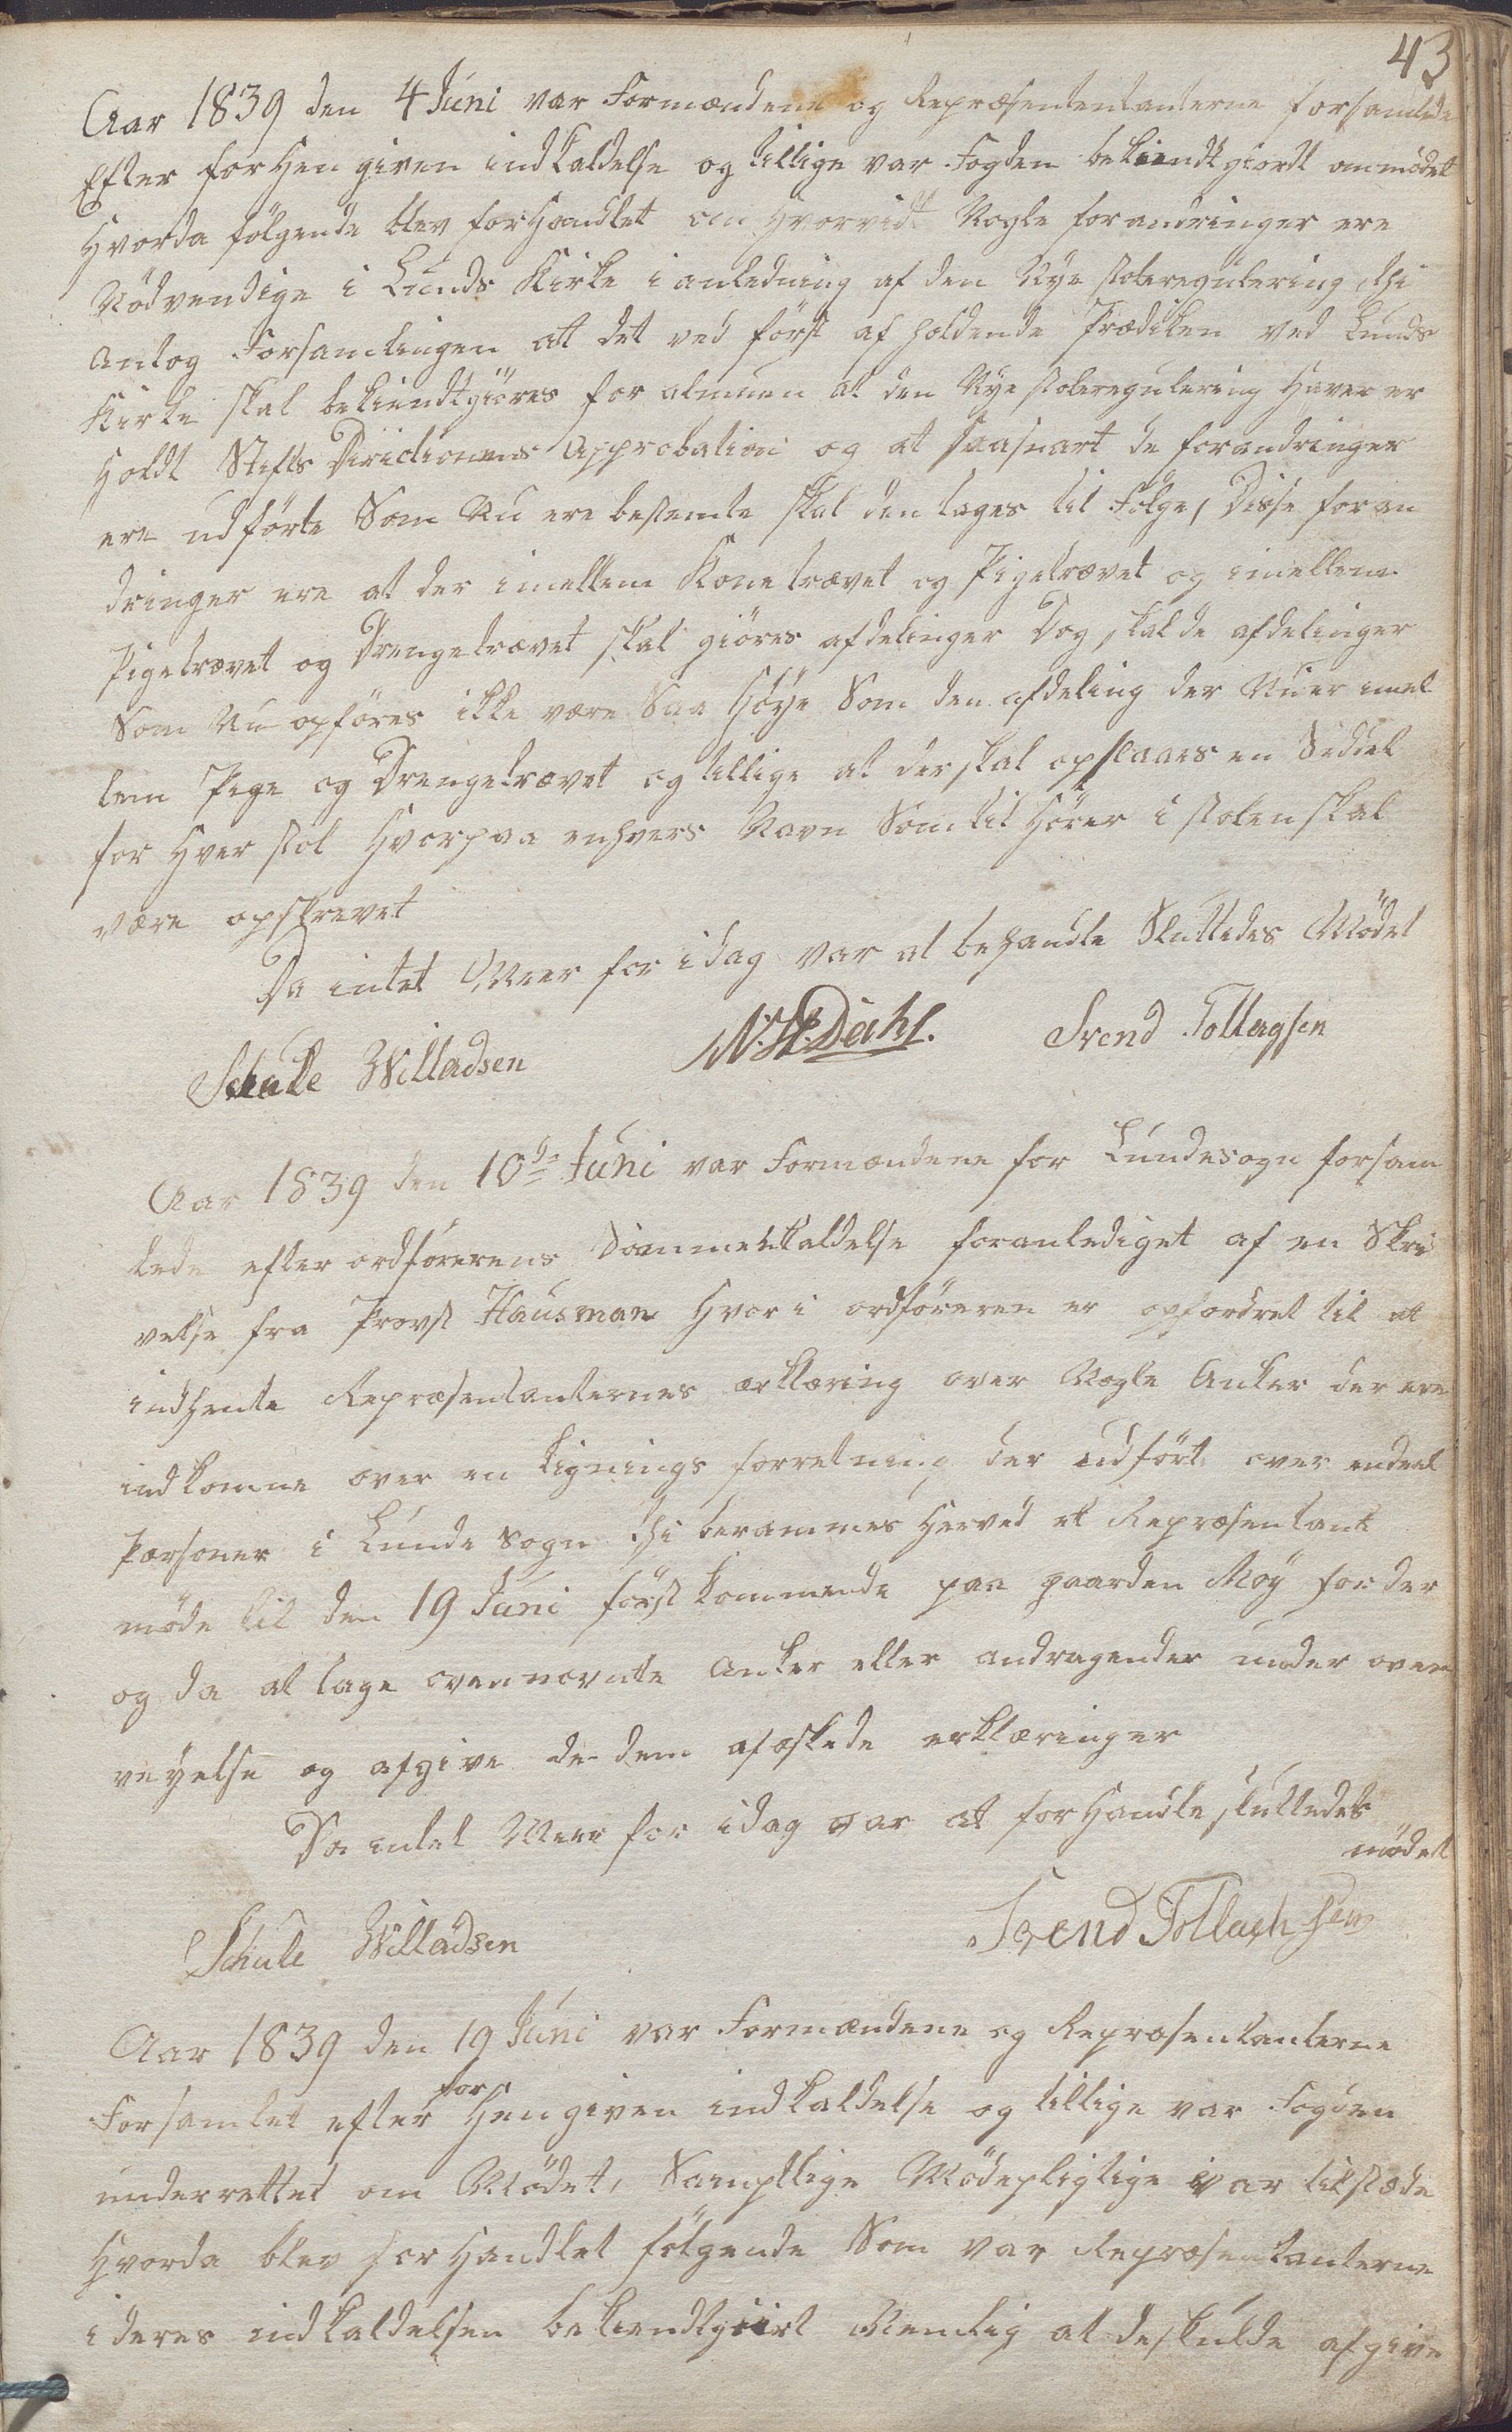 43
Aar 1839 den 4 Juni var Formændene og Repræsententanterne forsamlede
Efter forhen given indkaldelse og tillige var Fogden bekiendtgiordt om mødet
Hvorda følgende blev forhandlet om hvorvidt Nogle forandringer ere
Nödvendige i Lunds Kirke i anledning af den Nye stoleregulering, thi
antog Forsamlingen at det ved först afholdende Prædiken ved Lunds
Kirke skal bekiendtgjöres for almuen at den Nye stoleregulering haver er
Holdt Stifts Dirictionens Approbation og at saasnart de forandringer
ere udförte Som Nu ere bestemte skal den tages til Fölge, Disse foran
dringer ere at der imellem Konetrævet og Pigetrævet og imellem
Pigetrævet og Drengetrævet skal giöres afdelinger Dog skal de afdelinger
Som Nu opföres ikke være Saa höye Som den afdeling der Nu er imel
lem Pige og Drengetrævet og tillige at der skal opslaaes en Seddel
for Hver stol Hvorpaa enhvers Navn Som til Hörer i stolen skal
være opskrevet
Da intet Meer for idag var at behandle Sluttedes Mödet
Schule Willadsen N. H. Dahl. Svend Tollagsen
Aar 1839 den 10de Juni var Formændene for Lundesogn forsam
lede efter ordförerens Sammenkaldelse foranlediget af en Skri
velse fra Provst Hausman Hvori ordföreren er opfordret til at
indhente Repræsentanternes erklæring over Nogle Anker der ere
indkomne over en Lignings forretning der udfört over endeel
Personer i Lunde Sogn thi berammes Herved et Repræsentant
møde til den 19 Juni först kommende paa gaarden Moy for der
og da at tage ovennævnte Anker eller andragender under over
veyelse og afgive de dem afæskede erklæringer
Da intet Meer for idag var at forhandle sluttedes
mødet
Schule Willadsen Svend Tollachsen
Aar 1839 den 19 Juni var Formændene og Repræsentanterne
for
Forsamlet efter Hengiven indkaldelse og tillige var Fogden
underrettet om Mödet, Samptlige Mödepligtige var tilstæde
Hvorda blev forhandlet fölgende Som var Repræsentanterne
i deres indkaldelsen bekiendtgiort Nemlig at de skulde afgive